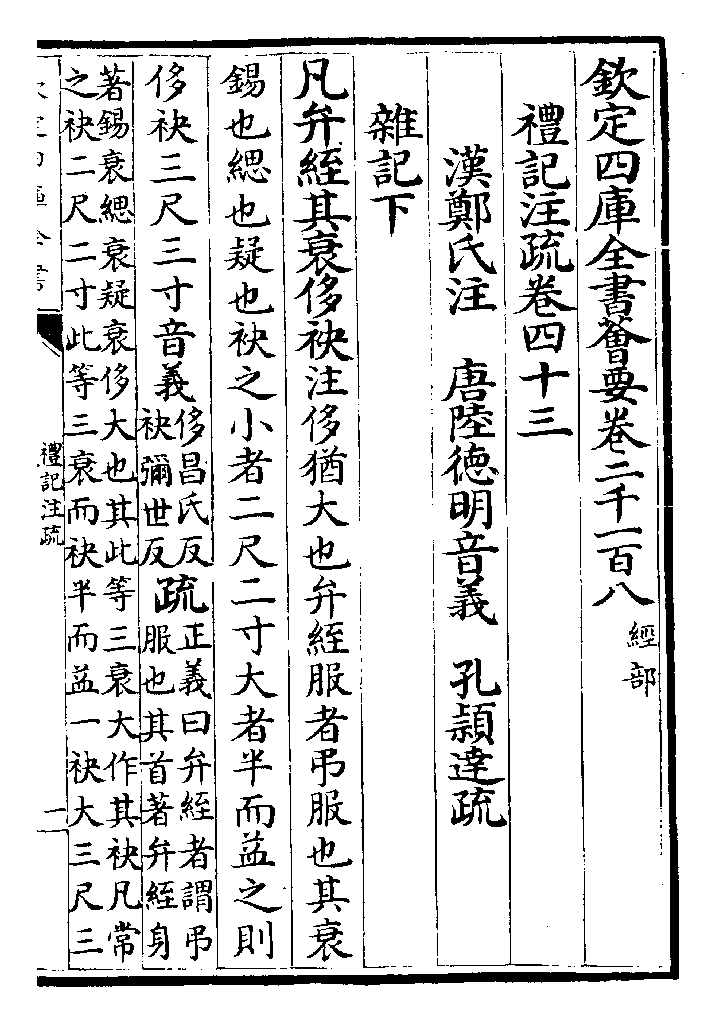 欽定四庫全書薈要卷二千一百八 經部
禮記注疏卷四十三
漢鄭氏注 唐陸徳明音義 孔頴達疏
雜記下
凡弁絰其衰侈袂注侈猶大也弁絰服者弔服也其衰
錫也緦也疑也袂之小者二尺二寸大者半而益之則
侈袂三尺三寸音義
侈昌氏反
袂彌世反
疏
正義曰弁絰者謂弔
服也其首著弁絰身
著錫衰緦衰疑衰侈大也其此等三衰大作其袂凡常
之袂二尺二寸此等三衰而袂半而益一袂大三尺三
欽定四庫全書
禮記注疏
一